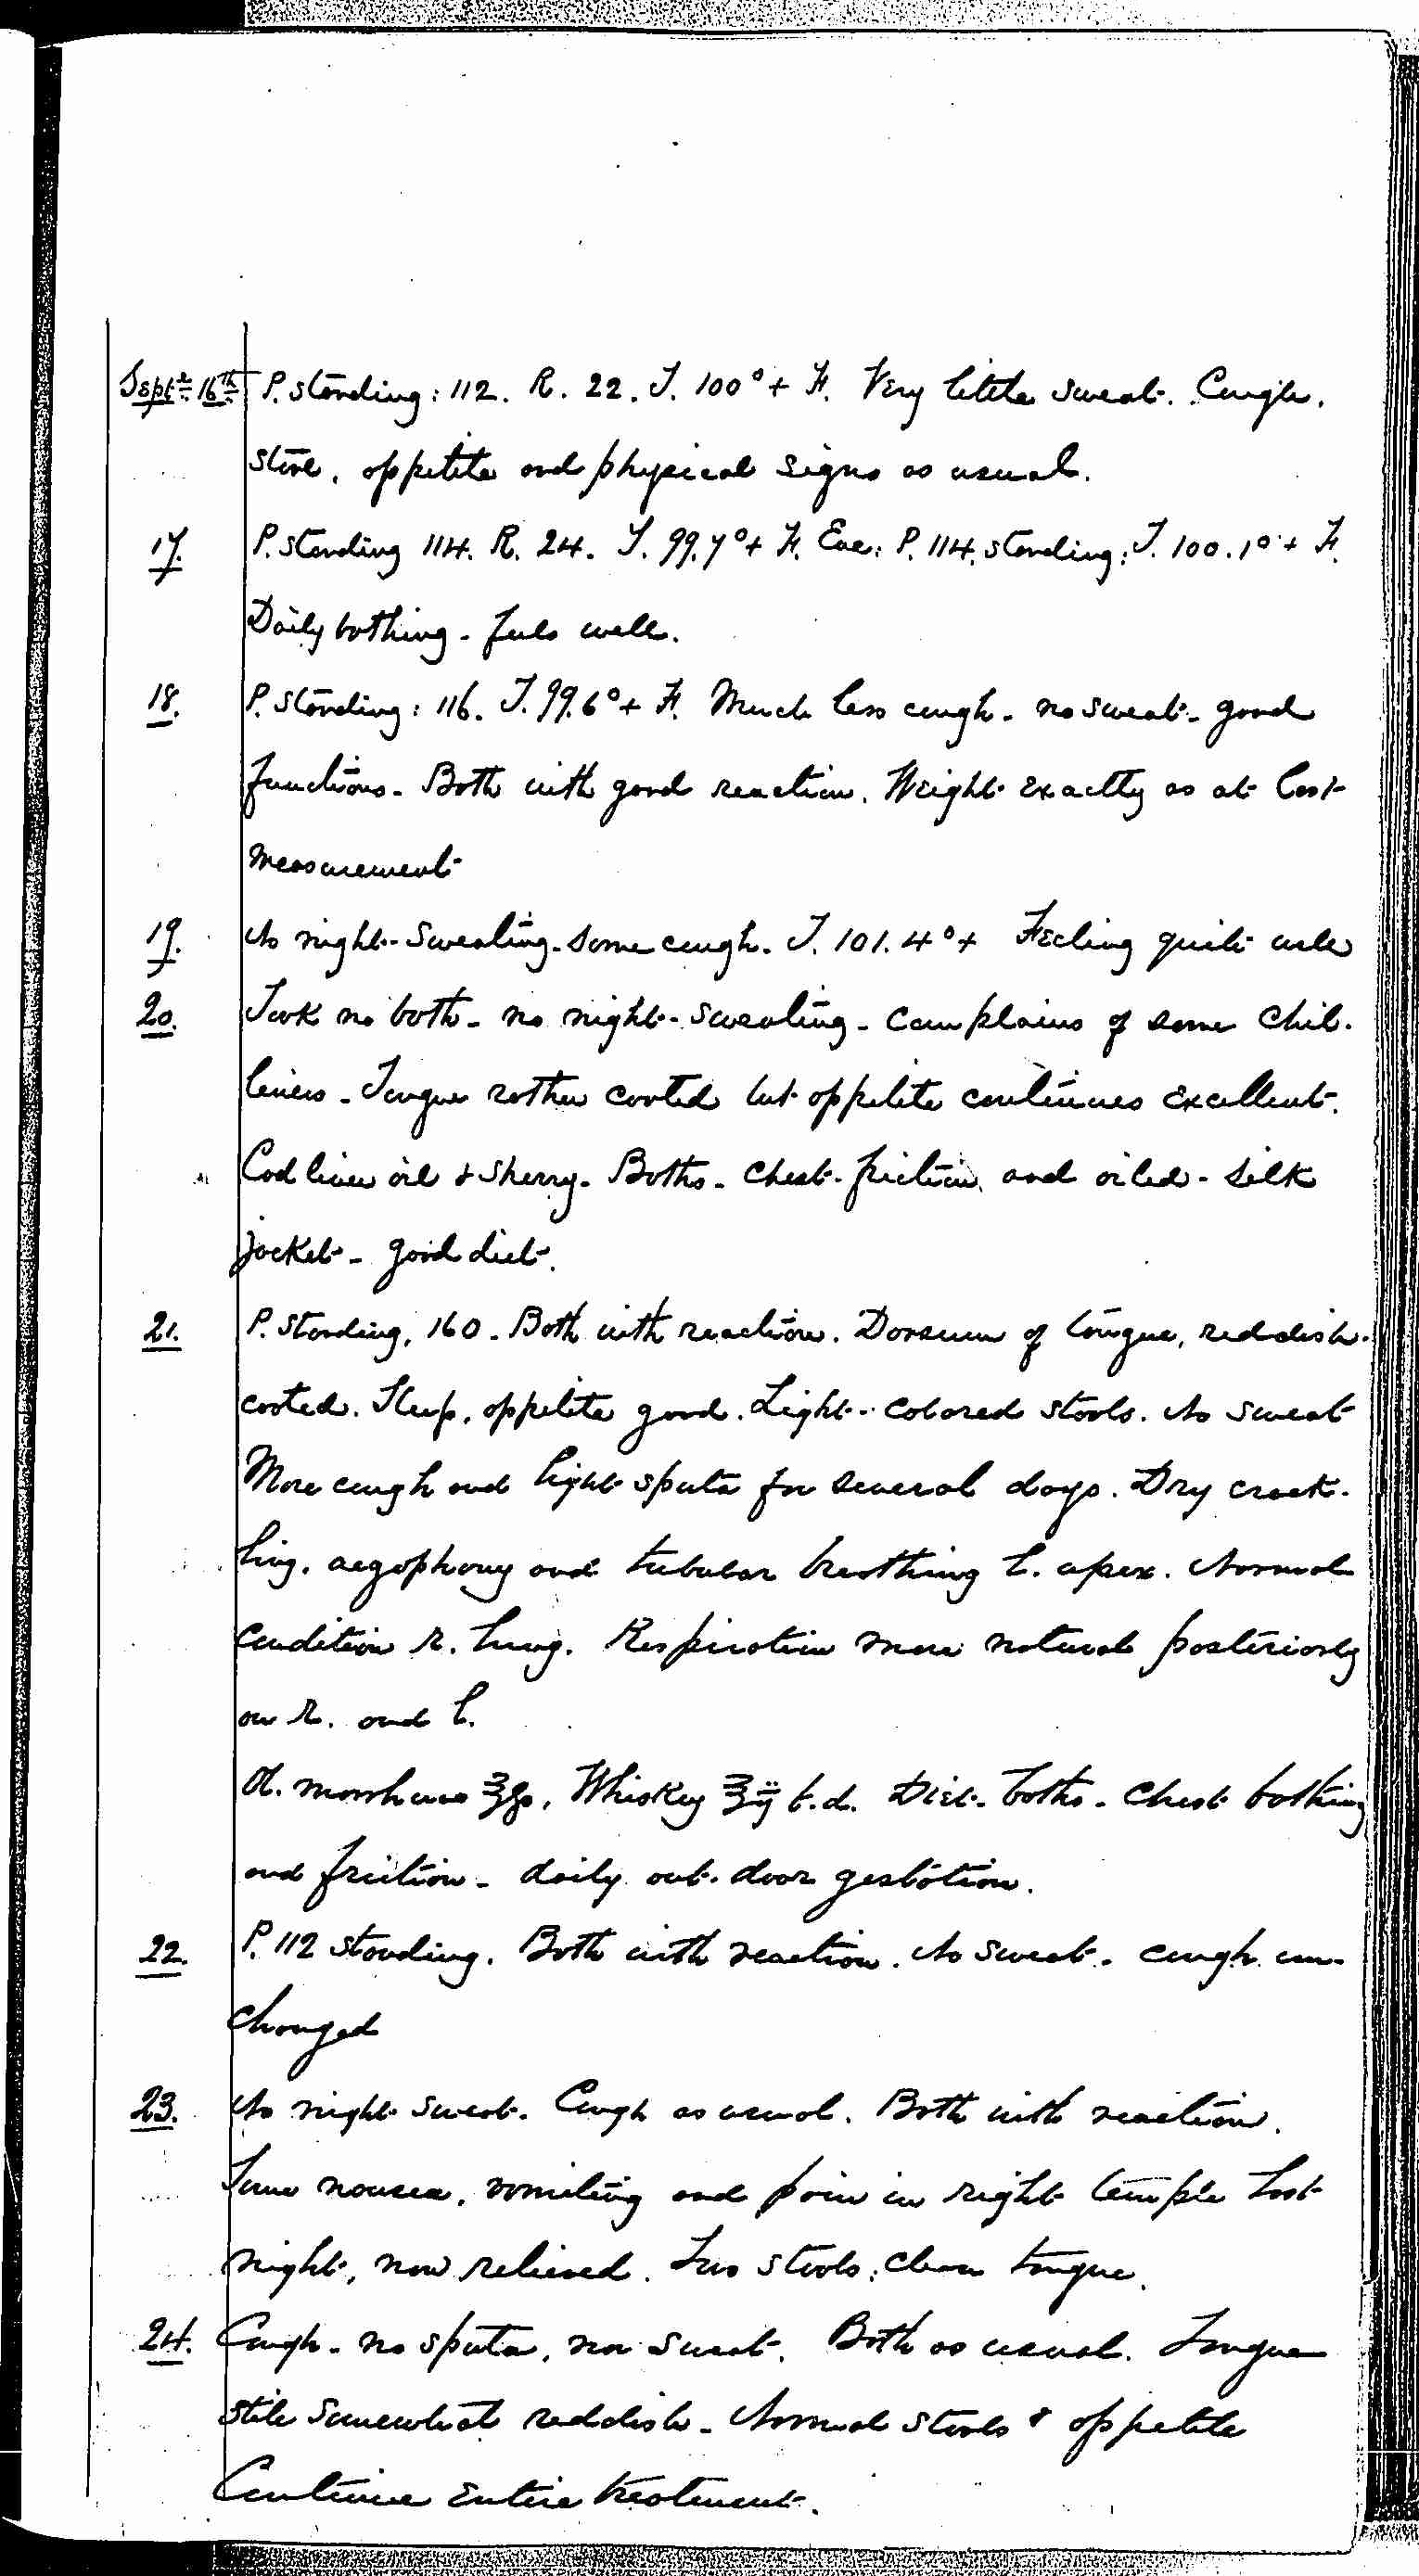 Sept. 16th P. standing: 112. R. 22. T. 100° + F. Very little sweat. Cough,
stool, appetite and physical signs as usual.
17. P. standing 114. R. 24. T. 99.7° + F. Eve: P. 114, standing: T. 100.1° + F.
Daily bathing - feels well.
18. P. standing: 116. T. 99.6° + F. Much less cough - no sweat - good
functions - Bath with good reaction. Weight exactly as at last
measurement
19. No night-sweating - some cough. T. 101.4° + Feeling quite well
20. Took no bath - no night-sweating - complains of some chil-
liness - Tongue rather coated but appetite continues excellent.
Cod liver oil & sherry - Baths - chest-friction and oiled-silk
jacket - good diet.
21. P. standing, 160 - Bath with reaction. Dorsum of tongue, reddish-
coated. Sleep, appetite good. Light-colored stools. No sweat
More cough and light sputa for several days. Dry crack-
ling, aegophony and tubular breathing l. apex. Normal
condition r. lung. Respiration more natural posteriorly
on r. and l.
Ol. morrhuae ℥ss, Whiskey ℥ij t.d. Diet - baths - chest bathing
and friction - daily out-door gestation.
22. P. 112 standing. Bath with reaction. No sweat - cough un-
changed
23. No night sweat. Cough as usual. Bath with reaction.
Some nausea, vomiting and pain in right temple last
night, now relieved. Two stools; clean tongue.
24. Cough - no sputa, nor sweat. Bath as usual. Tongue
still somewhat reddish - Normal stools & appetite
Continue entire treatment.